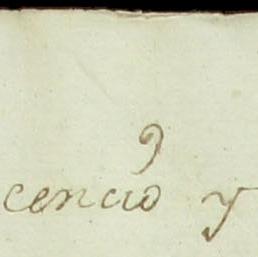 cencio y